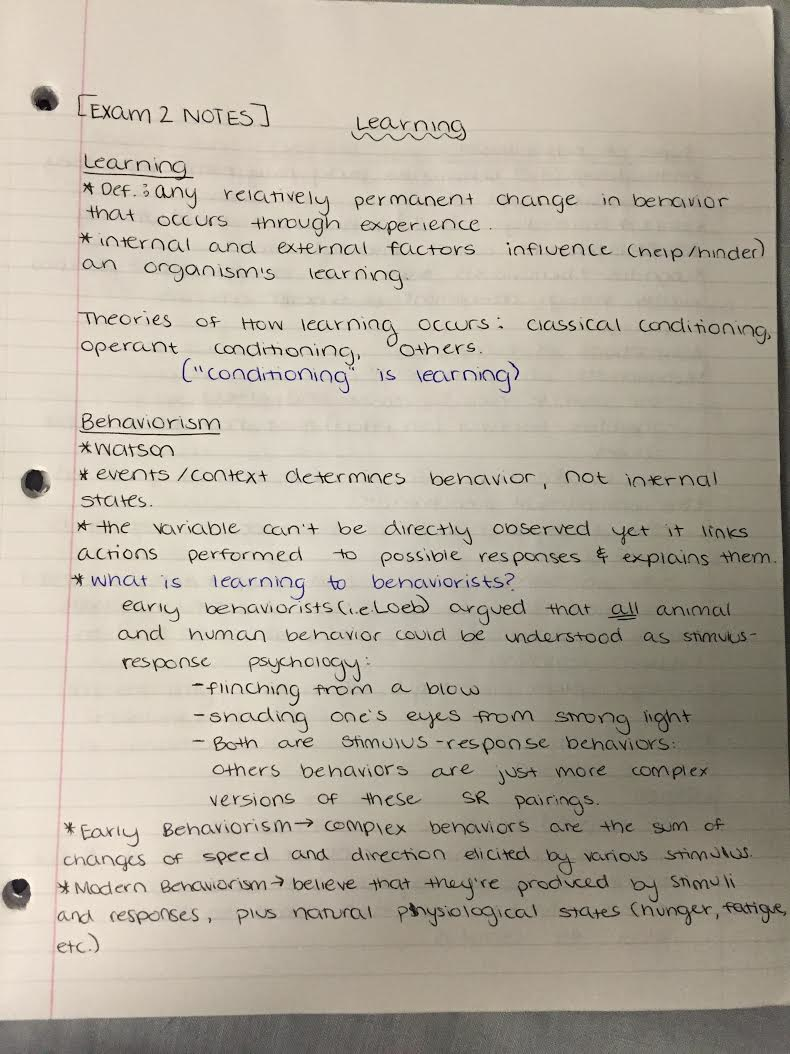 [Exam 2 NOTES]
Learning
Learning
* Def.: any relatively permanent change in behavior
that occurs through experience.
* internal and external factors influence (help/hinder)
an organism's learning.
Theories of How learning occurs: classical conditioning,
operant conditioning, others.
("conditioning" is learning)
Behaviorism
* Watson
* events/context determines behavior, not internal
states.
* the variable can't be directly observed yet it links
actions performed to possible responses & explains them.
* what is learning to behaviorists?
early behaviorists (i.e Loeb) argued that all animal
and human behavior could be understood as stimulus-
response psychology:
- flinching from a blow
- shading one's eyes from strong light
- Both are stimulus-response behaviors:
others behaviors are just more complex
versions of these SR pairings.
* Early Behaviorism → complex behaviors are the sum of
changes of speed and direction elicited by various stimulus.
* Modern Behaviorism → believe that they're produced by stimuli
and responses, plus natural physiological states (hunger, fatigue,
etc.)